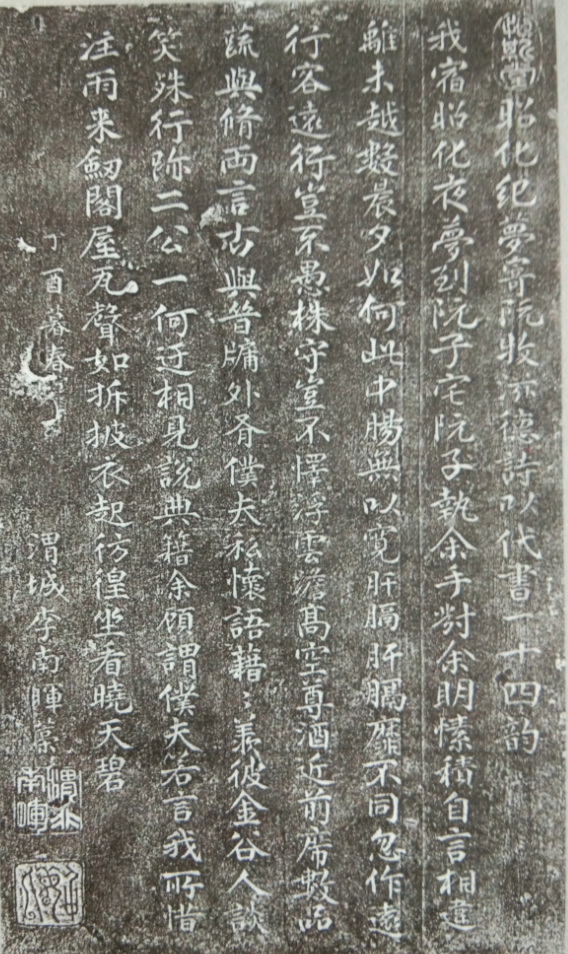 昭化紀夢寄阮牧所德詩以代書一十四韵
我宿昭化夜夢到阮子宅阮子執余手對余明愫積自言相違
離未越數晨夕如何此中腸無以寬肝膈肝膈靡不同忽作遠
行客遠行豈不愚株守豈不懌浮雲澹高空尊酒近前席數品
蔬與脩両言古與昔牖外斉僕夫私懷語藉〻羨彼金谷人談
笑殊行跡二公一何迂相見說典籍余顧謂僕夫若言我所惜
注雨来劒閣屋瓦聲如拆披衣起彷徨坐看曉天碧
丁酉暮春
渭城李南暉藁
南暉